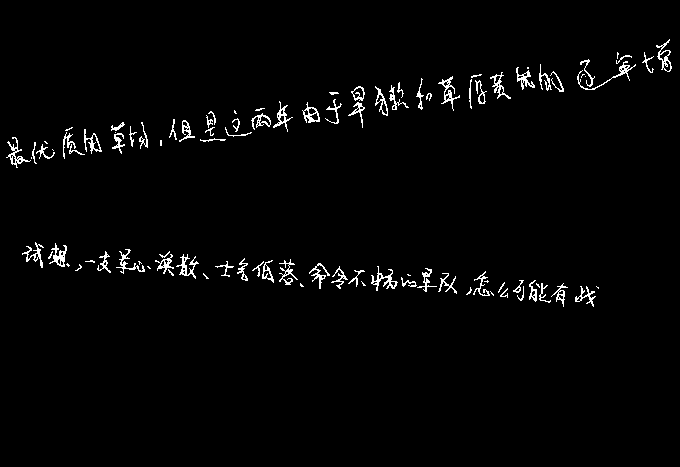 最优质的草场，但是这两年由于旱獭和草原黄鼠的逐年增
试想，一支军心涣散、士气低落、命令不畅的军队，怎么可能有战